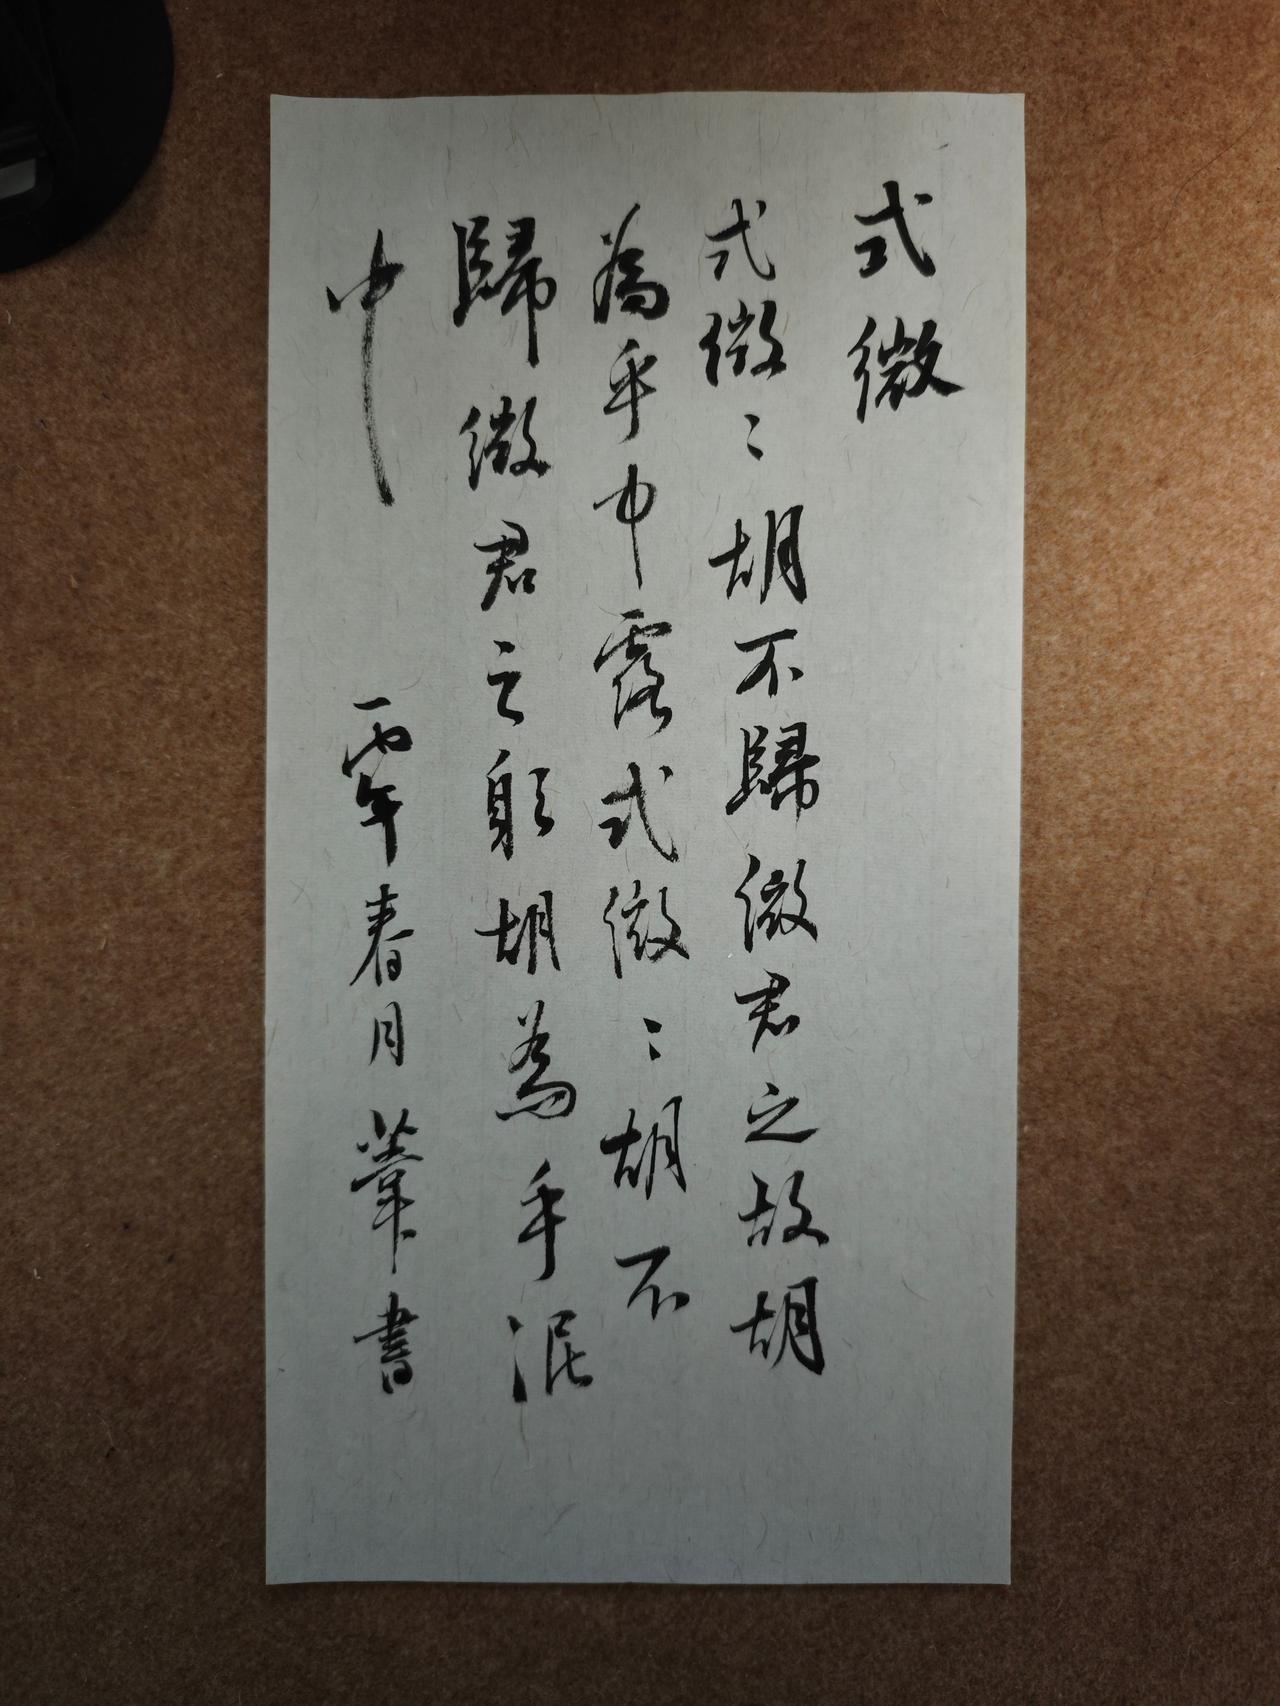 式微
式微〻胡不歸微君之故胡
為乎中露式微〻胡不
歸微君之躬胡為乎泥
中
丙午春月葦書